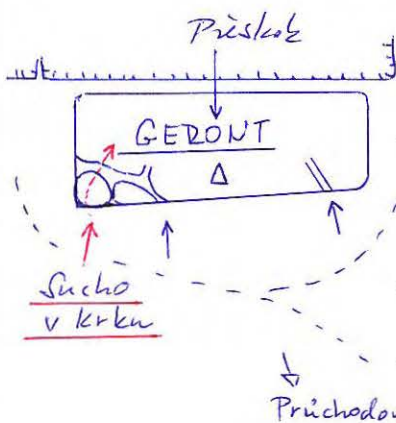 Přeskok
GERONT
Sucho
v krku
Průchodov